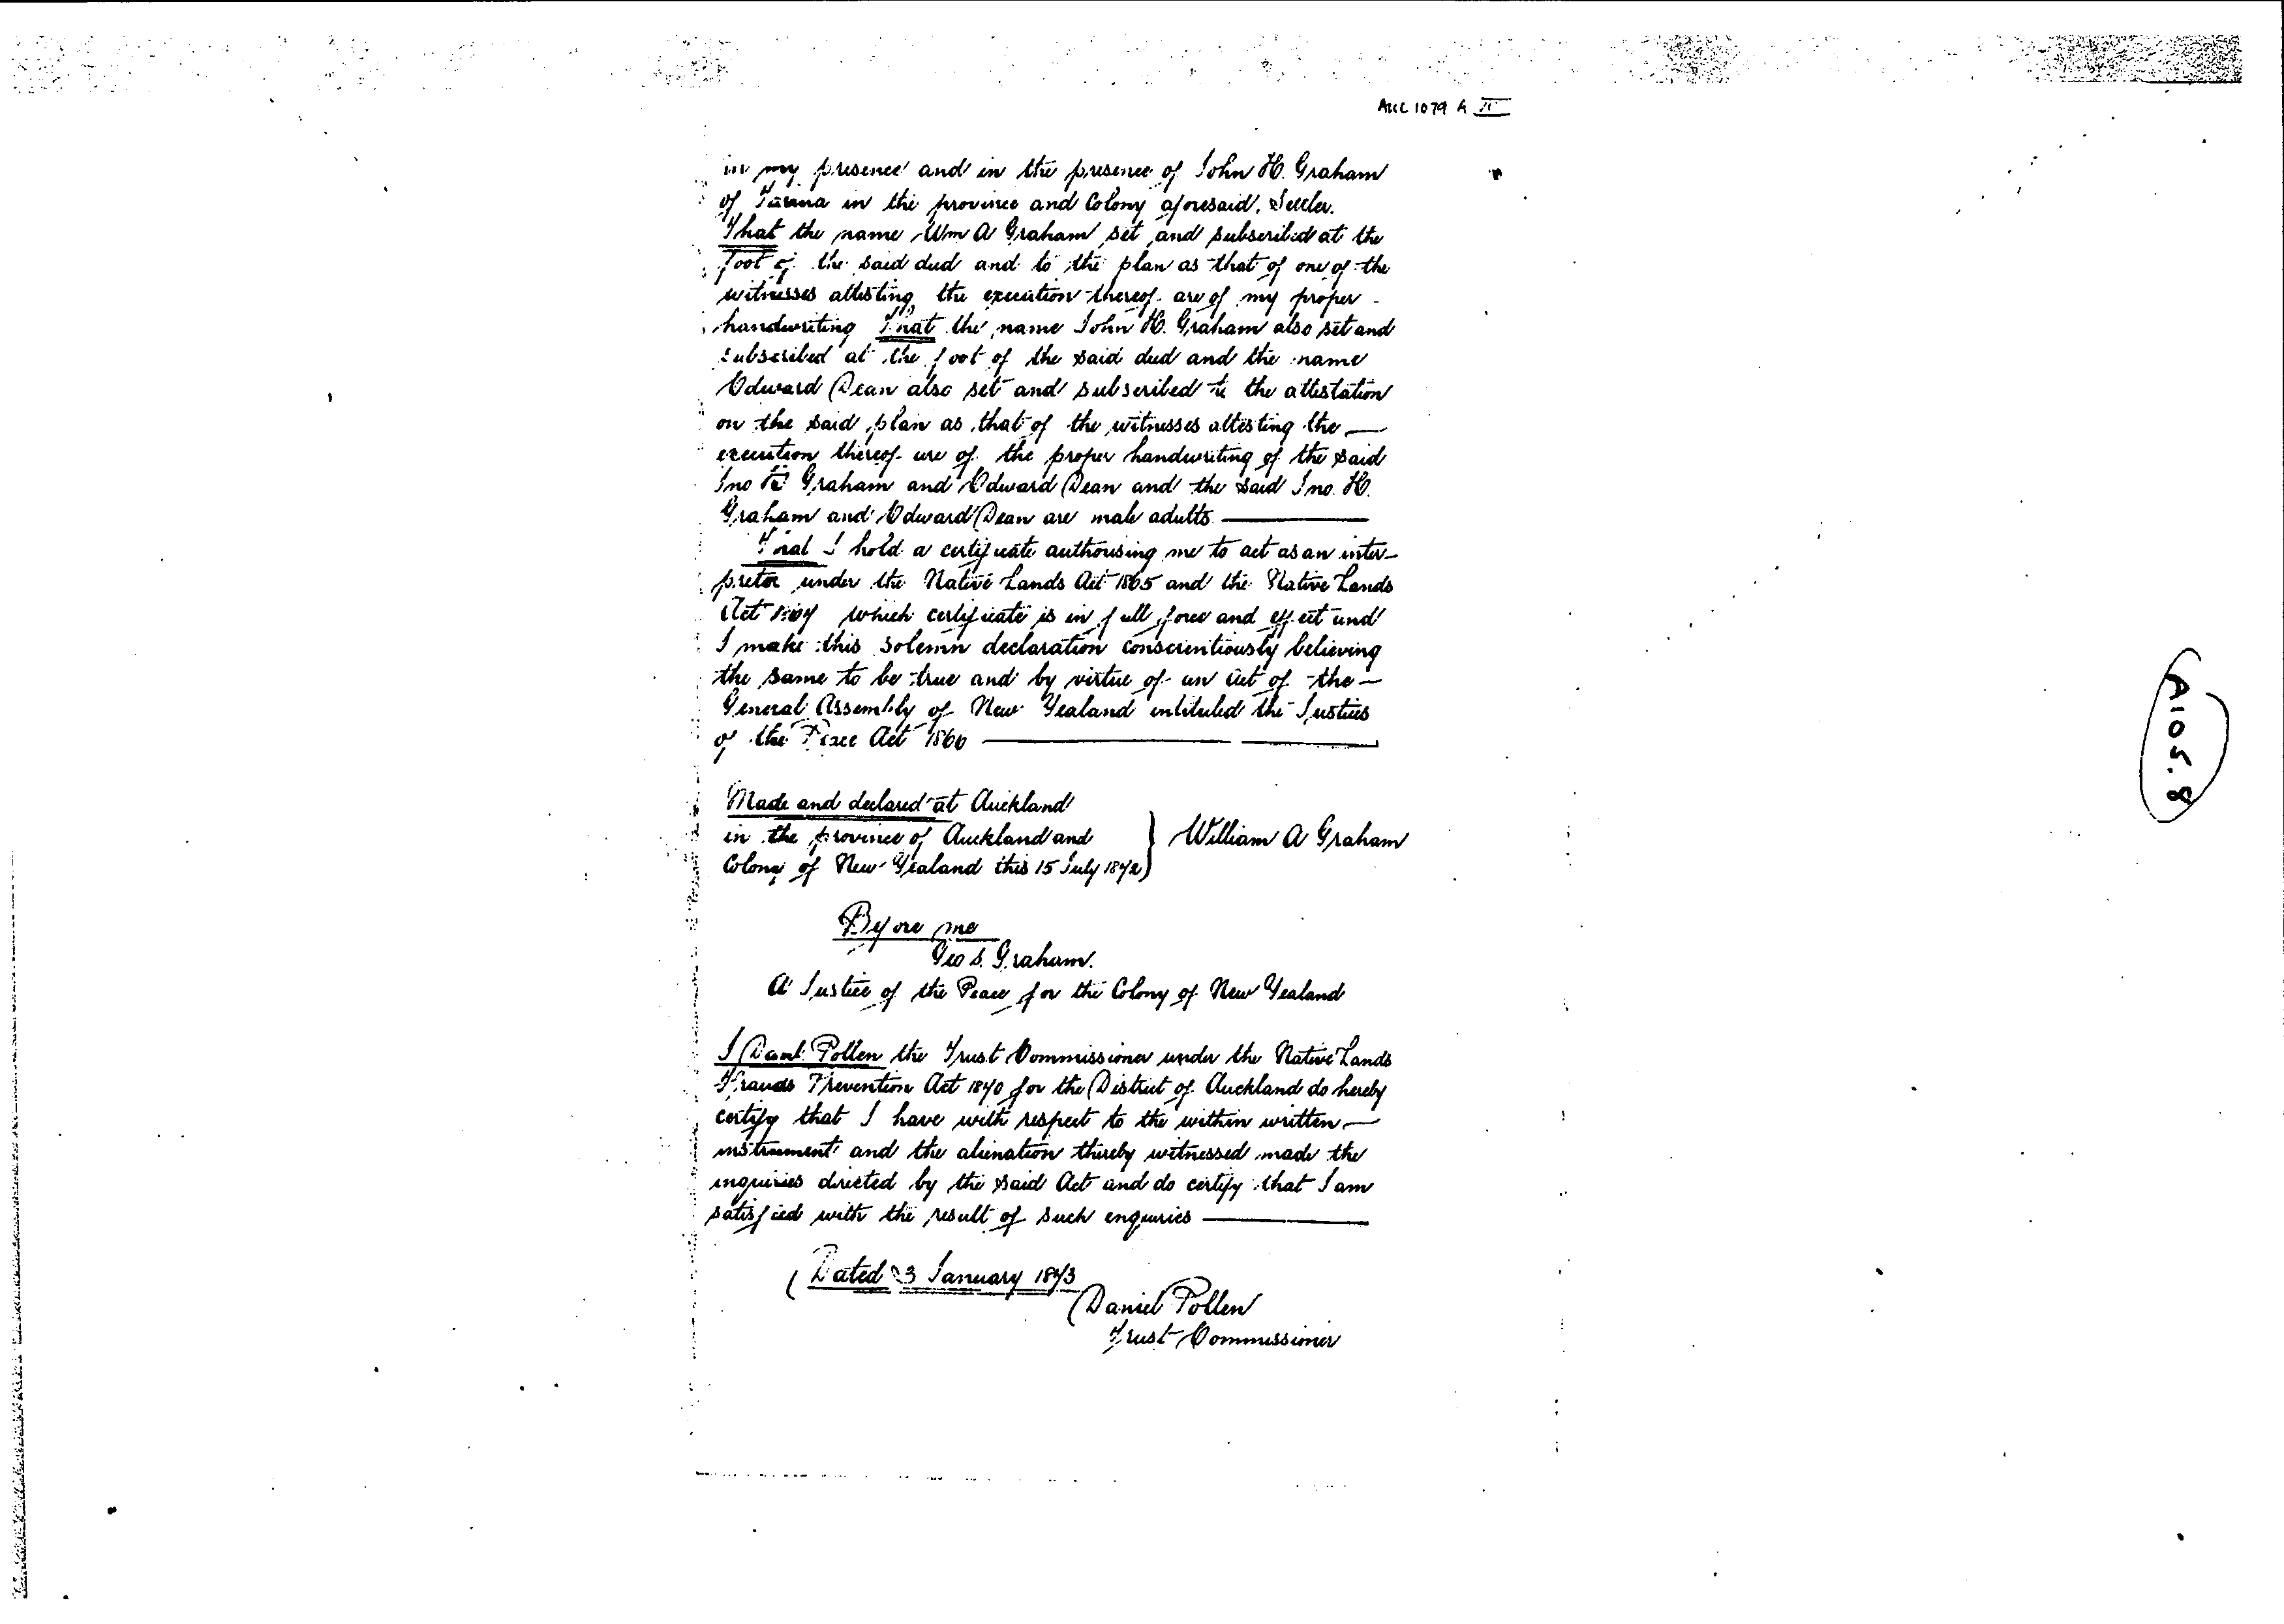 AUC 1079 A II
in my presence and in the presence of John H. Graham
of in the province and Colony aforesaid, Settler.
That the name Wm A Graham set and subscribed at the
foot of the said deed and to the plan as that of one of the
witnesses attesting the execution thereof are of my proper
handwriting That the name John H. Graham also set and
subscribed at the foot of the said deed and the name
Edward Dean also set and subscribed to the attestation
on the said plan as that of the witnesses attesting the —
execution thereof are of the proper handwriting of the said
Jno H Graham and Edward Dean and the said Jno. H.
Graham and Edward Dean are male adults —
That I hold a certificate authorising me to act as an inter-
pretor under the Native Lands Act 1865 and the Native Lands
Act which certificate is in full force and effect and
I make this solemn declaration conscientiously believing
the same to be true and by virtue of an Act of the —
General Assembly of New Zealand intituled the Justices
of the Peace Act 1866 —
Made and declared at Auckland
in the province of Auckland and
Colony of New Zealand this 15 July 1872
William A Graham
Before me
Geo S. Graham.
A Justice of the Peace for the Colony of New Zealand
I Danl. Pollen the Trust Commissioner under the Native Lands
Frauds Prevention Act 1870 for the District of Auckland do hereby
certify that I have with respect to the within written —
instrument and the alienation thereby witnessed made the
inquiries directed by the said Act and do certify that I am
satisfied with the result of such enquiries —
Dated 3 January 1873
Daniel Pollen
Trust Commissioner
A105.8